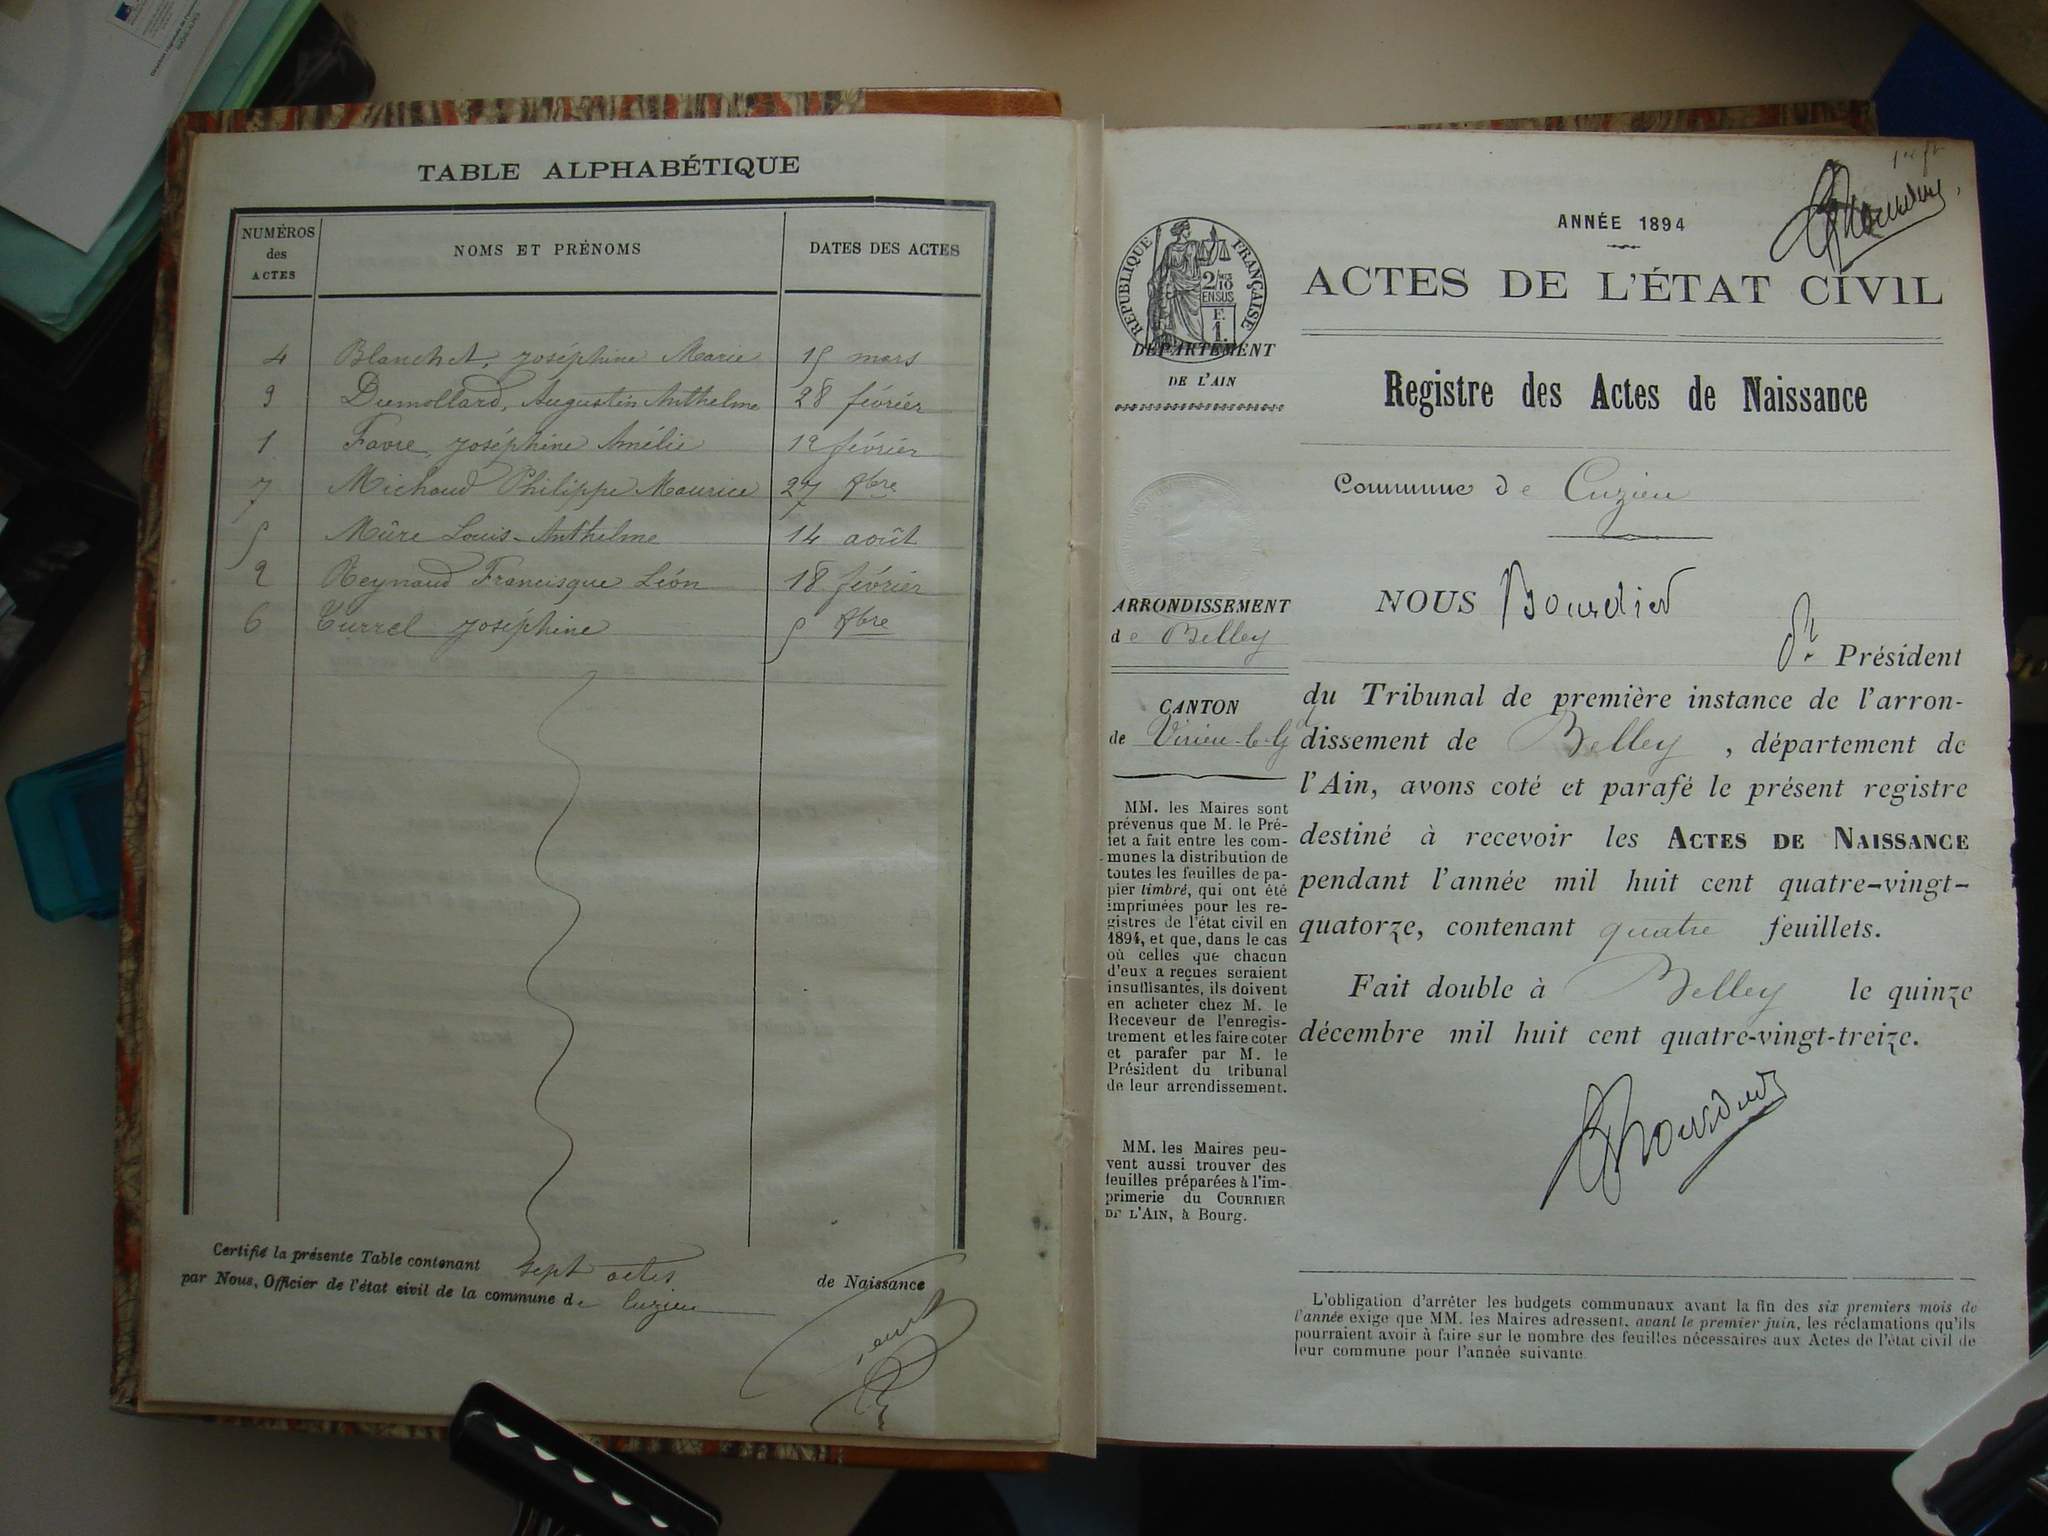 TABLE ALPHABÉTIQUE
NUMÉROS
des
ACTES
NOMS ET PRÉNOMS
DATES DES ACTES
4 Blanchet, Joséphine Marie 15 mars
3 Dumollard, Augustin Anthelme 28 février
1 Favre, Joséphine Amélie 12 février
7 Michaud Philippe Maurice 27 8bre
5 Mûre Louis-Anthelme 14 août
2 Reynaud Francisque Léon 18 février
6 Turrel Joséphine 5 8bre
Certifié la présente Table contenant sept actes de Naissance
par Nous, Officier de l'état civil de la commune de Cuzieu
ANNÉE 1894
RÉPUBLIQUE FRANÇAISE
2/10
EN SUS
F.
1.
ACTES DE L'ÉTAT CIVIL
DÉPARTEMENT
DE L'AIN
Registre des Actes de Naissance
Commune de Cuzieu
ARRONDISSEMENT
de Belley
CANTON
de Virieu-le-Gd
MM. les Maires sont
prévenus que M. le Pré-
fet a fait entre les com-
munes la distribution de
toutes les feuilles de pa-
pier timbré, qui ont été
imprimées pour les re-
gistres de l'état civil en
1894, et que, dans le cas
où celles que chacun
d'eux a reçues seraient
insuffisantes, ils doivent
en acheter chez M. le
Receveur de l'enregis-
trement et les faire coter
et parafer par M. le
Président du tribunal
de leur arrondissement.
MM. les Maires peu-
vent aussi trouver des
feuilles préparées à l'im-
primerie du COURRIER
DE L'AIN, à Bourg.
NOUS Bourdier
Président
du Tribunal de première instance de l'arron-
dissement de Belley, département de
l'Ain, avons coté et parafé le présent registre
destiné à recevoir les ACTES DE NAISSANCE
pendant l'année mil huit cent quatre-vingt-
quatorze, contenant quatre feuillets.
Fait double à Belley le quinze
décembre mil huit cent quatre-vingt-treize.
Bourdier
L'obligation d'arrêter les budgets communaux avant la fin des six premiers mois de
l'année exige que MM. les Maires adressent, avant le premier juin, les réclamations qu'ils
pourraient avoir à faire sur le nombre des feuilles nécessaires aux Actes de l'état civil de
leur commune pour l'année suivante.